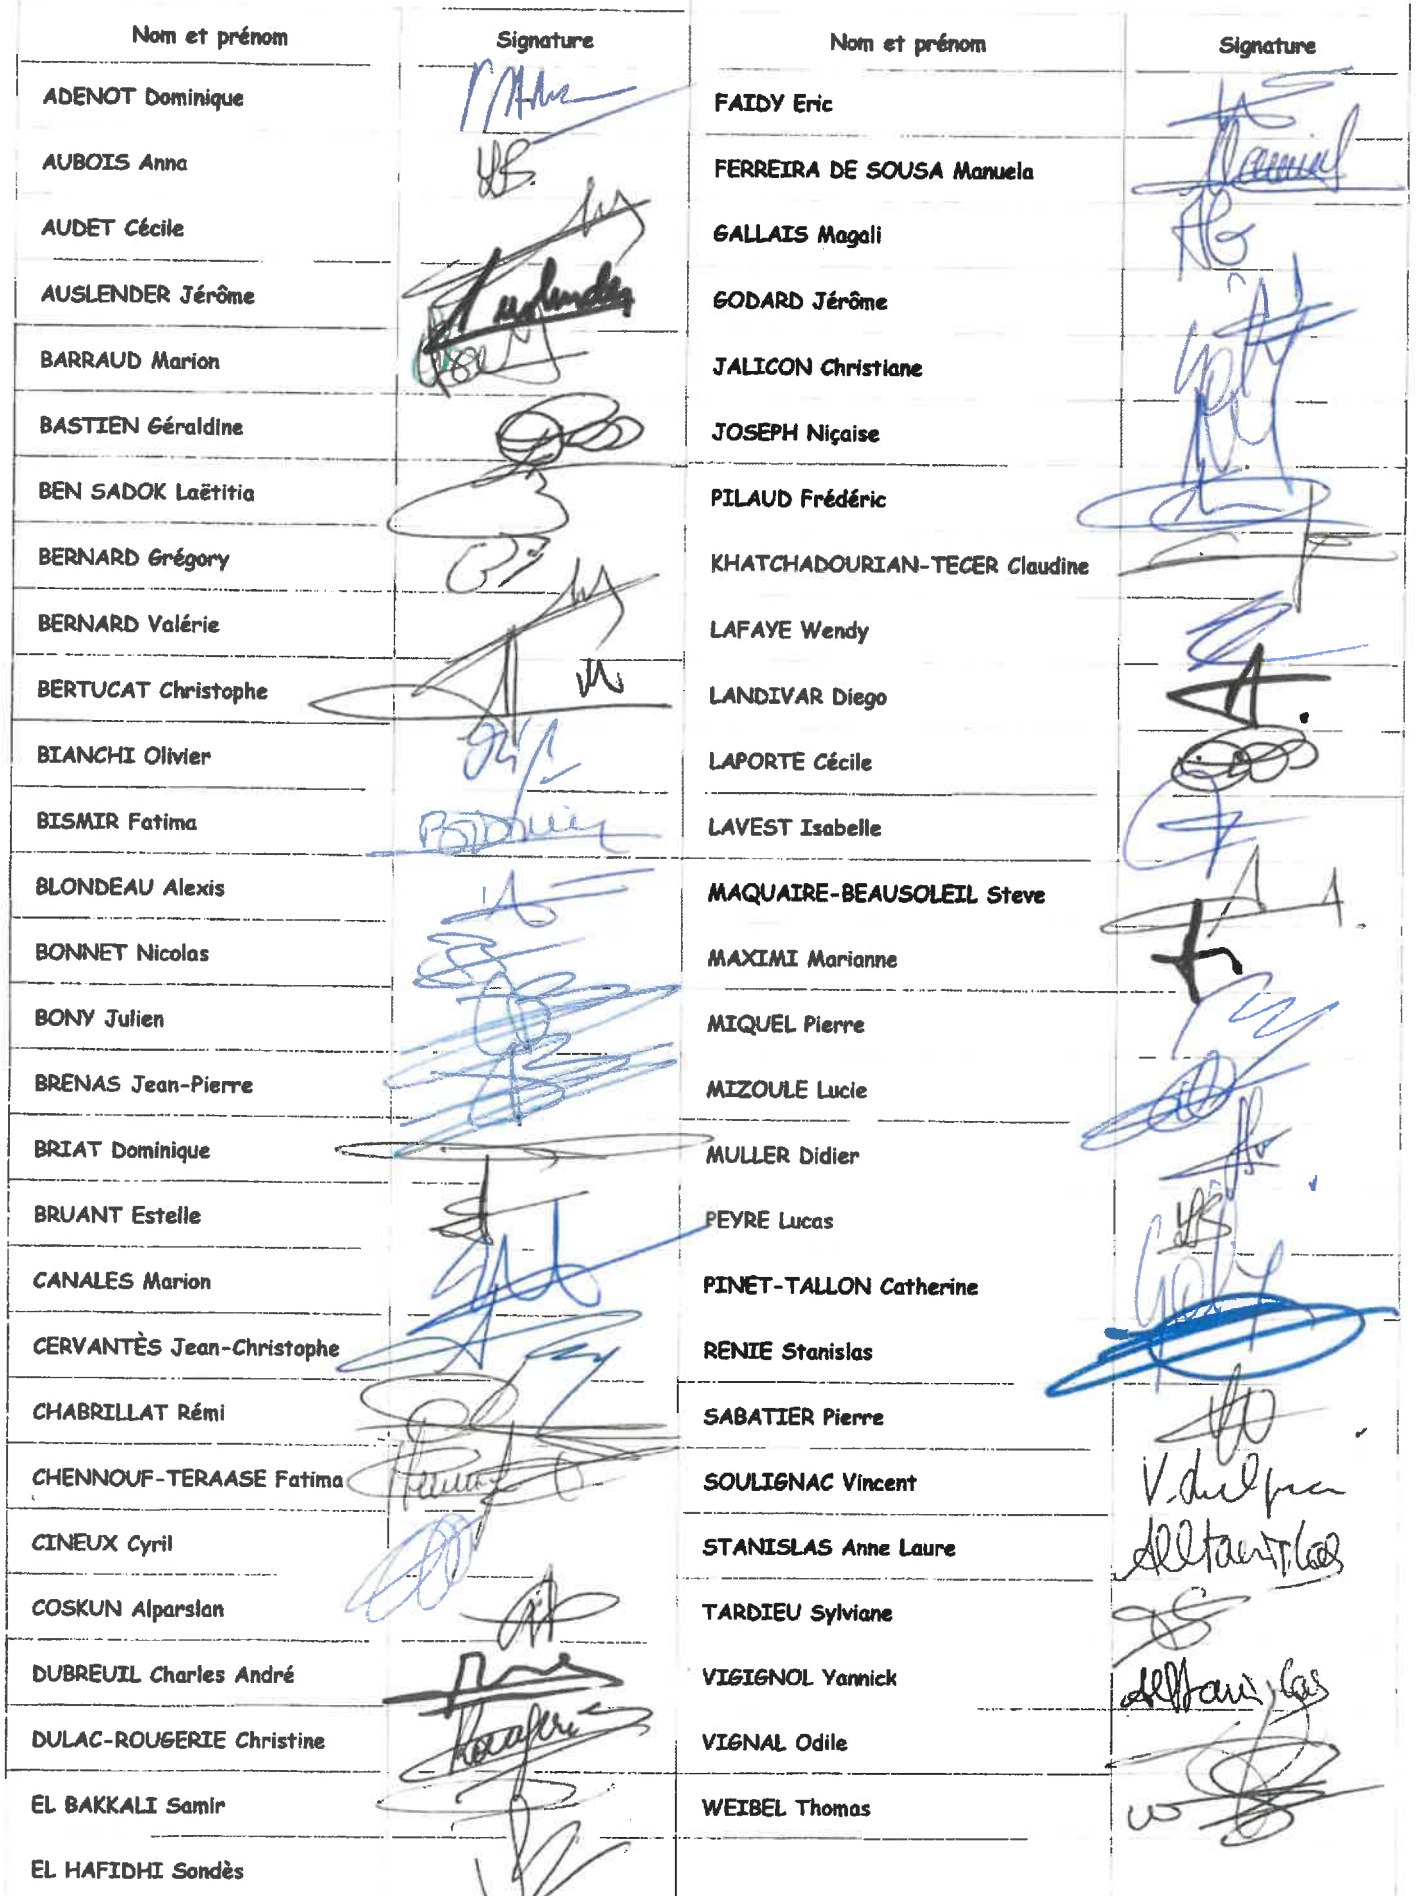 Nom et prénom
Signature
ADENOT Dominique
AUBOIS Anna
AUDET Cécile
AUSLENDER Jérôme
BARRAUD Marion
BASTIEN Géraldine
BEN SADOK Laëtitia
BERNARD Grégory
BERNARD Valérie
BERTUCAT Christophe
BIANCHI Olivier
BISMIR Fatima
BLONDEAU Alexis
BONNET Nicolas
BONY Julien
BRENAS Jean-Pierre
BRIAT Dominique
BRUANT Estelle
CANALES Marion
CERVANTÈS Jean-Christophe
CHABRILLAT Rémi
CHENNOUF-TERAASE Fatima
CINEUX Cyril
COSKUN Alparslan
DUBREUIL Charles André
DULAC-ROUGERIE Christine
EL BAKKALI Samir
EL HAFIDHI Sondès
Nom et prénom
Signature
FAIDY Eric
FERREIRA DE SOUSA Manuela
GALLAIS Magali
GODARD Jérôme
JALICON Christiane
JOSEPH Niçaise
PILAUD Frédéric
KHATCHADOURIAN-TECER Claudine
LAFAYE Wendy
LANDIVAR Diego
LAPORTE Cécile
LAVEST Isabelle
MAQUAIRE-BEAUSOLEIL Steve
MAXIMI Marianne
MIQUEL Pierre
MIZOULE Lucie
MULLER Didier
PEYRE Lucas
PINET-TALLON Catherine
RENIE Stanislas
SABATIER Pierre
SOULIGNAC Vincent
STANISLAS Anne Laure
TARDIEU Sylviane
VIGIGNOL Yannick
VIGNAL Odile
WEIBEL Thomas